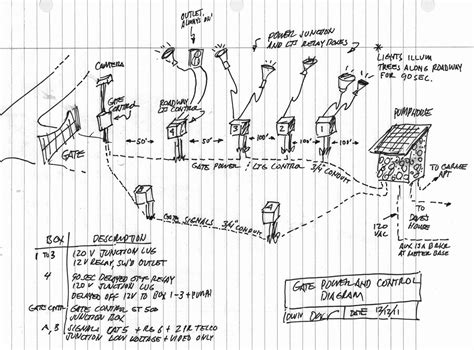 OUTLET,
ALWAYS ON!
POWER JUNCTION
AND LTG RELAY BOXES
*
LIGHTS ILLUM
TREES ALONG ROADWAY
FOR 90 SEC.
CAMERA
GATE
CONTROL
ROADWAY
LTG CONTROL
PUMPHOUSE
B
4
3
2
1
50'
50'
100'
100'
100'
GATE
GATE POWER / LTG CONTROL 3/4" CONDUIT
TO GARAGE
APT
GATE SIGNALS 3/4" CONDUIT
A
120
VAC
TO
DAVE'S
HOUSE
AUX 15A BRKR
AT METER BASE
BOX DESCRIPTION
1 TO 3 120 V JUNCTION LUG
12V RELAY, SW'D OUTLET
4 90 SEC DELAYED OFF RELAY
120V JUNCTION LUG
DELAYED OFF 12V TO BOX 1-3 + PUMPH
GATE CNTR GATE CONTROL GT 500
JUNCTION BOX
A, B SIGNAL: CAT 5 + RG 6 + 2 PR TELCO
JUNCTION LOW VOLTAGE + VIDEO ONLY
GATE POWER AND CONTROL
DIAGRAM
DATE 13/12/11